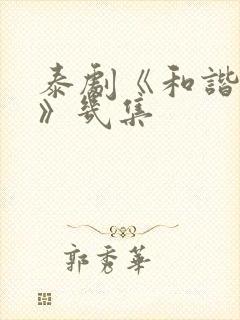 泰劇《和諧
》幾集
郭秀華